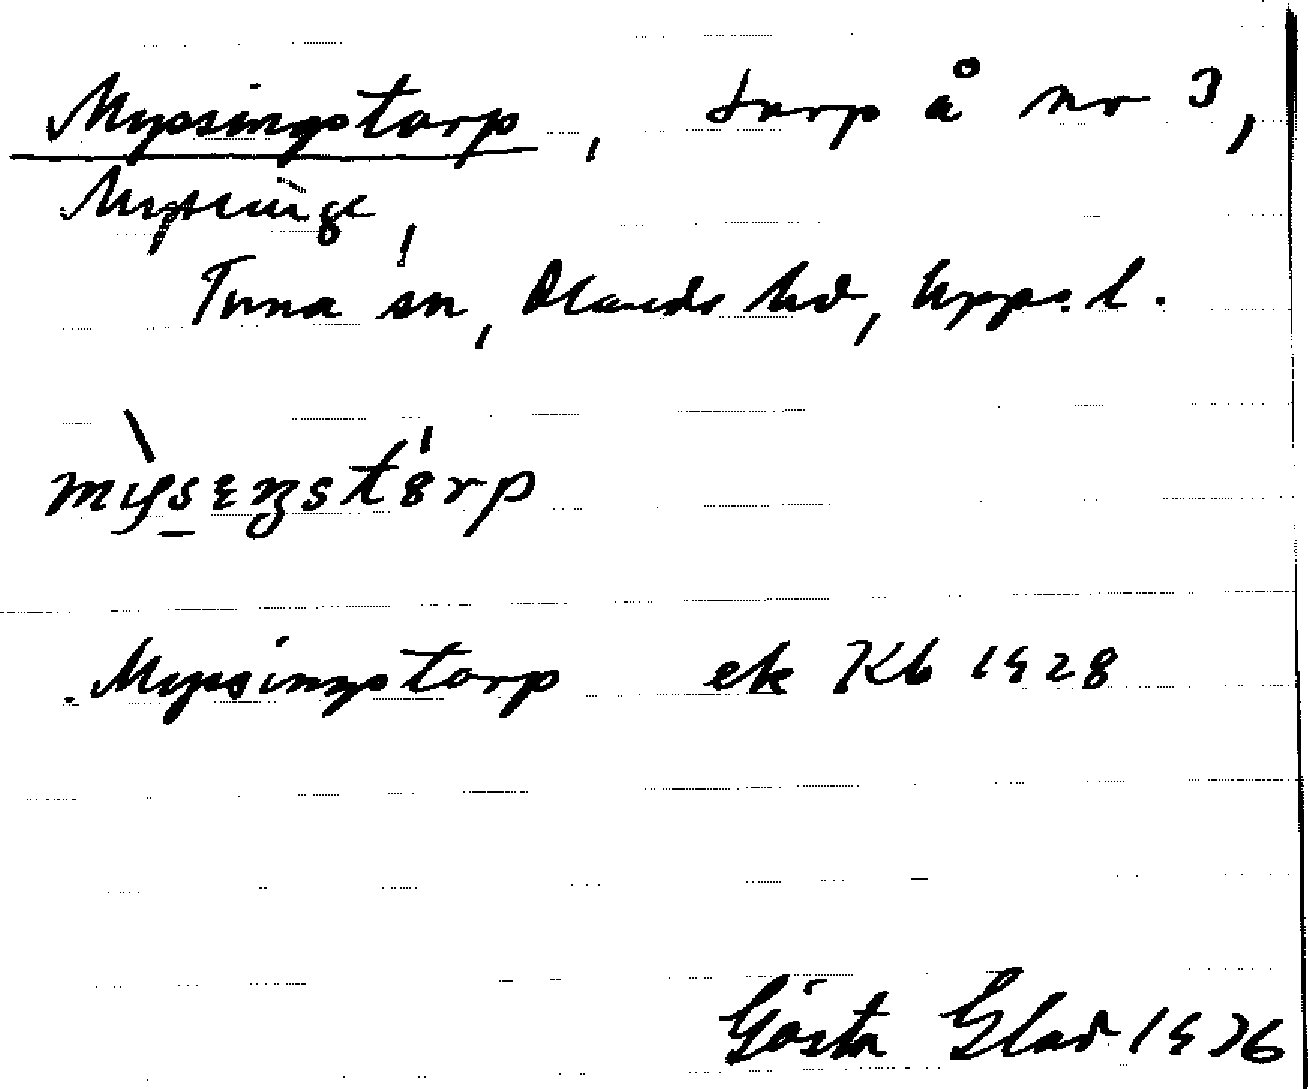 Mysingstorp, torp å nr 3,
Mysinge,
Tuna sn, Olands hd, Upps. l.
mysengstorp
Mysingstorp ek Kb 1928
Gösta Glad 1936